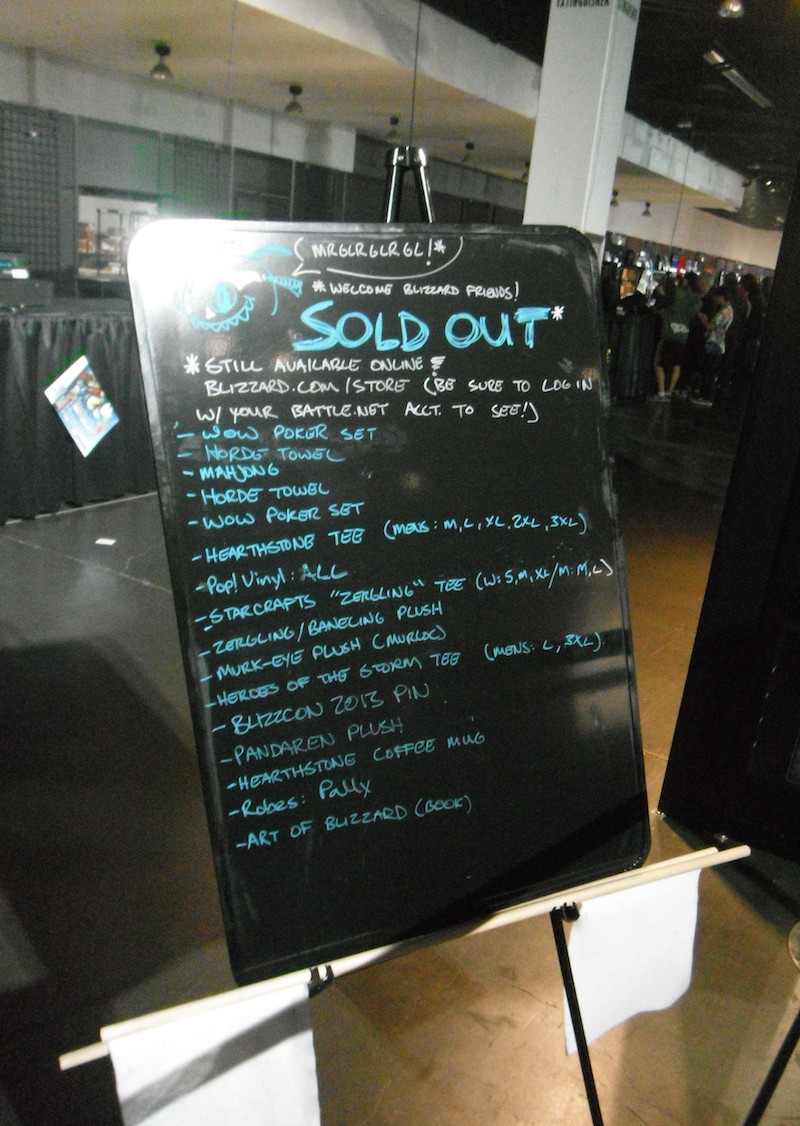 EXTINGUISHER
MRGLRGLRGL!*
*WELCOME BLIZZARD FRIENDS!
SOLD OUT*
*STILL AVAILABLE ONLINE
BLIZZARD.COM/STORE (BE SURE TO LOG IN
W/ YOUR BATTLE.NET ACCT. TO SEE!)
- WOW POKER SET
- HORDE TOWEL
- MAHJONG
- HORDE TOWEL
- WOW POKER SET
- HEARTHSTONE TEE (MENS: M, L, XL, 2XL, 3XL)
- Pop! Vinyl: ALL
- STARCRAFTS "ZERGLING" TEE (W: S, M, XL/M: M, L)
- ZERGLING/BANELING PLUSH
- MURK-EYE PLUSH (MURLOC)
- HEROES OF THE STORM TEE (MENS: L, 3XL)
- BLIZZCON 2013 PIN
- PANDAREN PLUSH
- HEARTHSTONE COFFEE MUG
- Robes: Pally
- ART OF BLIZZARD (BOOK)